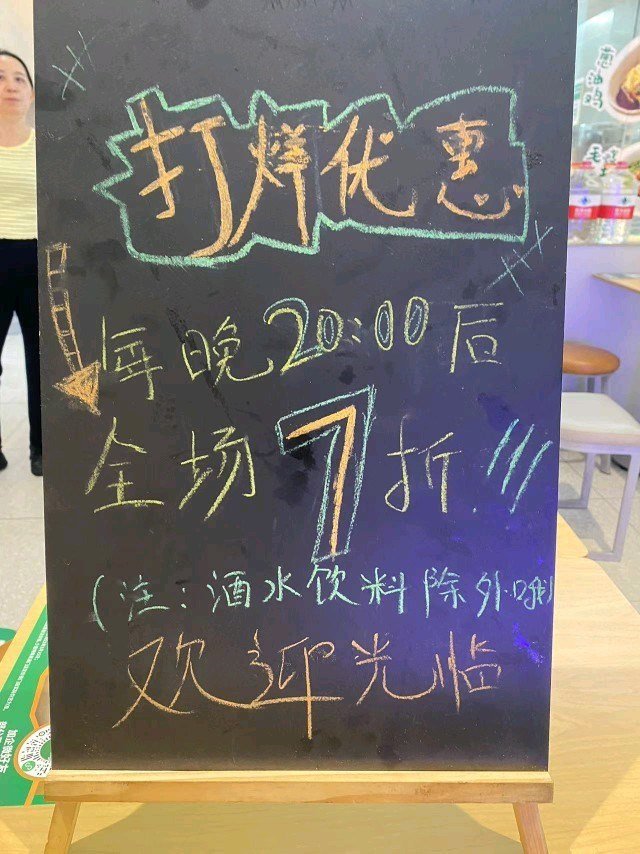 打烊优惠
每晚20:00后
全场7折!!!
(注:酒水饮料除外哦
欢迎光临